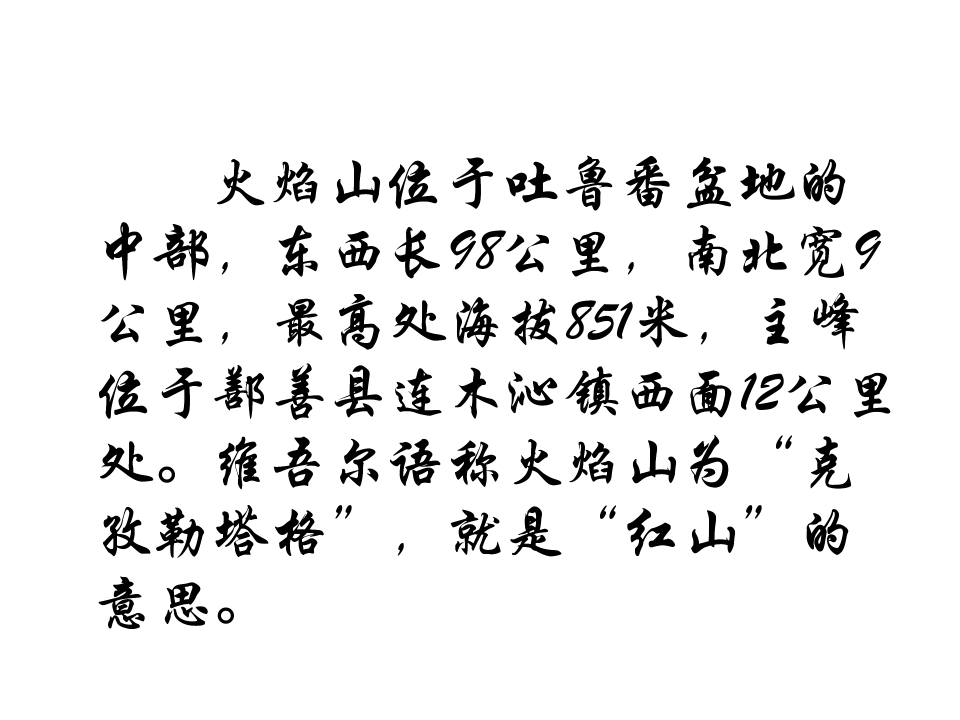 火焰山位于吐鲁番盆地的
中部，东西长98公里，南北宽9
公里，最高处海拔851米，主峰
位于鄯善县连木沁镇西面12公里
处。维吾尔语称火焰山为“克
孜勒塔格”，就是“红山”的
意思。